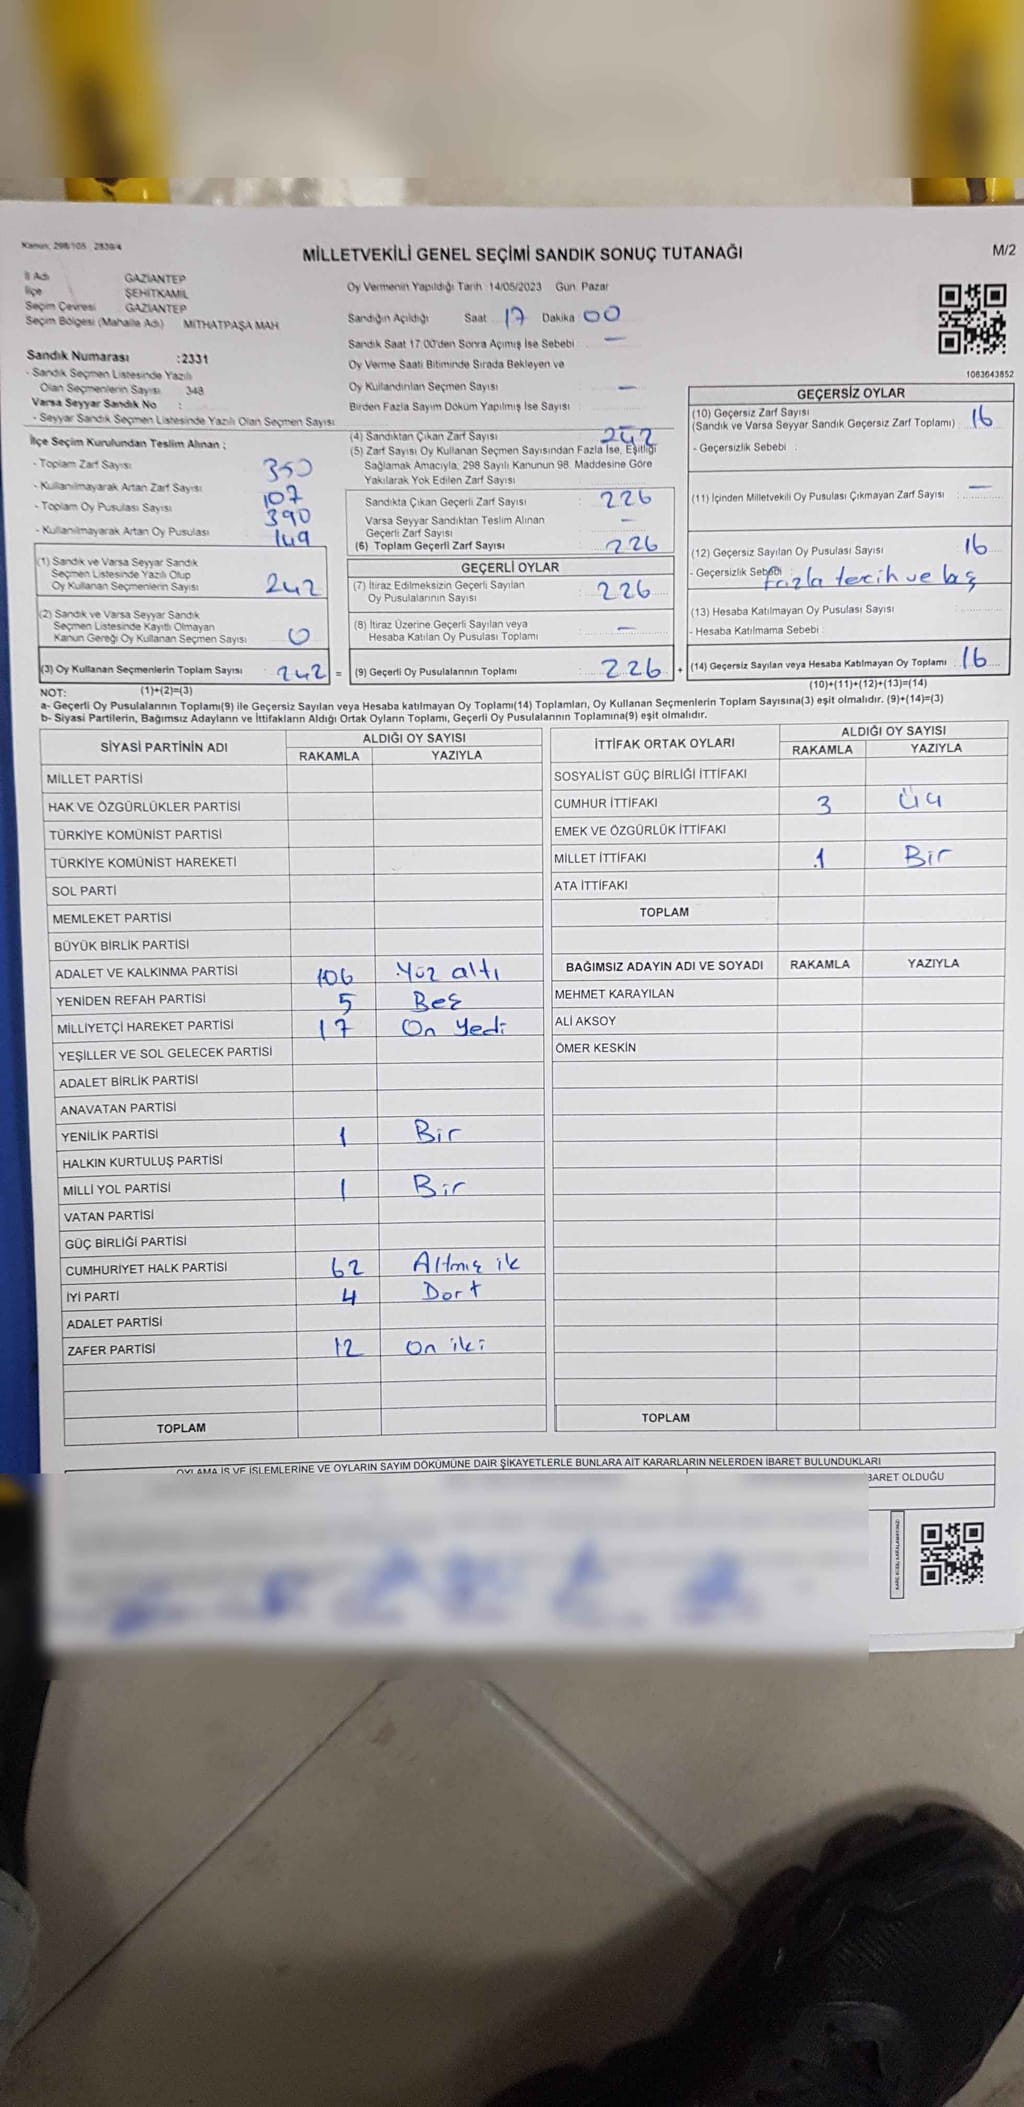 Kanun: 298/105 2839/4
MİLLETVEKİLİ GENEL SEÇİMİ SANDIK SONUÇ TUTANAĞI
M/2
İl Adı GAZİANTEP
İlçe ŞEHİTKAMİL
Seçim Çevresi GAZİANTEP
Seçim Bölgesi (Mahalle Adı) MİTHATPAŞA MAH
Oy Vermenin Yapıldığı Tarih :14/05/2023 Gün: Pazar
Sandığın Açıldığı Saat 17 Dakika 00
Sandık Saat 17.00'den Sonra Açımış İse Sebebi —
Oy Verme Saati Bitiminde Sırada Bekleyen ve
Oy Kullandırılan Seçmen Sayısı —
Birden Fazla Sayım Döküm Yapılmış İse Sayısı :
Sandık Numarası :2331
- Sandık Seçmen Listesinde Yazılı
Olan Seçmenlerin Sayısı 348
Varsa Seyyar Sandık No :
- Seyyar Sandık Seçmen Listesinde Yazılı Olan Seçmen Sayısı
İlçe Seçim Kurulundan Teslim Alınan ;
- Toplam Zarf Sayısı 350
- Kullanılmayarak Artan Zarf Sayısı 107
- Toplam Oy Pusulası Sayısı 390
- Kullanılmayarak Artan Oy Pusulası 149
(1) Sandık ve Varsa Seyyar Sandık
Seçmen Listesinde Yazılı Olup
Oy Kullanan Seçmenlerin Sayısı 242
(2) Sandık ve Varsa Seyyar Sandık
Seçmen Listesinde Kayıtlı Olmayan
Kanun Gereği Oy Kullanan Seçmen Sayısı 0
(3) Oy Kullanan Seçmenlerin Toplam Sayısı 242 =
(4) Sandıktan Çıkan Zarf Sayısı 242
(5) Zarf Sayısı Oy Kullanan Seçmen Sayısından Fazla İse, Eşitliği
Sağlamak Amacıyla, 298 Sayılı Kanunun 98. Maddesine Göre
Yakılarak Yok Edilen Zarf Sayısı
Sandıkta Çıkan Geçerli Zarf Sayısı 226
Varsa Seyyar Sandıktan Teslim Alınan
Geçerli Zarf Sayısı —
(6) Toplam Geçerli Zarf Sayısı 226
GEÇERLİ OYLAR
(7) İtiraz Edilmeksizin Geçerli Sayılan
Oy Pusulalarının Sayısı 226
(8) İtiraz Üzerine Geçerli Sayılan veya
Hesaba Katılan Oy Pusulası Toplamı —
(9) Geçerli Oy Pusulalarının Toplamı 226 +
1083643852
GEÇERSİZ OYLAR
(10) Geçersiz Zarf Sayısı
(Sandık ve Varsa Seyyar Sandık Geçersiz Zarf Toplamı) 16
- Geçersizlik Sebebi :
(11) İçinden Milletvekili Oy Pusulası Çıkmayan Zarf Sayısı —
(12) Geçersiz Sayılan Oy Pusulası Sayısı 16
- Geçersizlik Sebebi fazla tercih ve boş
(13) Hesaba Katılmayan Oy Pusulası Sayısı
- Hesaba Katılmama Sebebi :
(14) Geçersiz Sayılan veya Hesaba Katılmayan Oy Toplamı 16
NOT: (1)+(2)=(3)
(10)+(11)+(12)+(13)=(14)
a- Geçerli Oy Pusulalarının Toplamı(9) ile Geçersiz Sayılan veya Hesaba katılmayan Oy Toplamı(14) Toplamları, Oy Kullanan Seçmenlerin Toplam Sayısına(3) eşit olmalıdır. (9)+(14)=(3)
b- Siyasi Partilerin, Bağımsız Adayların ve İttifakların Aldığı Ortak Oyların Toplamı, Geçerli Oy Pusulalarının Toplamına(9) eşit olmalıdır.
SİYASİ PARTİNİN ADI ALDIĞI OY SAYISI
RAKAMLA YAZIYLA
MİLLET PARTİSİ
HAK VE ÖZGÜRLÜKLER PARTİSİ
TÜRKİYE KOMÜNİST PARTİSİ
TÜRKİYE KOMÜNİST HAREKETİ
SOL PARTİ
MEMLEKET PARTİSİ
BÜYÜK BİRLİK PARTİSİ
ADALET VE KALKINMA PARTİSİ 106 Yüz altı
YENİDEN REFAH PARTİSİ 5 Beş
MİLLİYETÇİ HAREKET PARTİSİ 17 On yedi
YEŞİLLER VE SOL GELECEK PARTİSİ
ADALET BİRLİK PARTİSİ
ANAVATAN PARTİSİ
YENİLİK PARTİSİ 1 Bir
HALKIN KURTULUŞ PARTİSİ
MİLLİ YOL PARTİSİ 1 Bir
VATAN PARTİSİ
GÜÇ BİRLİĞİ PARTİSİ
CUMHURİYET HALK PARTİSİ 62 Altmış ik
İYİ PARTİ 4 Dort
ADALET PARTİSİ
ZAFER PARTİSİ 12 On iki
TOPLAM
İTTİFAK ORTAK OYLARI ALDIĞI OY SAYISI
RAKAMLA YAZIYLA
SOSYALİST GÜÇ BİRLİĞİ İTTİFAKI
CUMHUR İTTİFAKI 3 Üç
EMEK VE ÖZGÜRLÜK İTTİFAKI
MİLLET İTTİFAKI 1 Bir
ATA İTTİFAKI
TOPLAM
BAĞIMSIZ ADAYIN ADI VE SOYADI RAKAMLA YAZIYLA
MEHMET KARAYILAN
ALİ AKSOY
ÖMER KESKİN
TOPLAM
OYLAMA İŞ VE İŞLEMLERİNE VE OYLARIN SAYIM DÖKÜMÜNE DAİR ŞİKAYETLERLE BUNLARA AİT KARARLARIN NELERDEN İBARET BULUNDUKLARI
BARET OLDUĞU